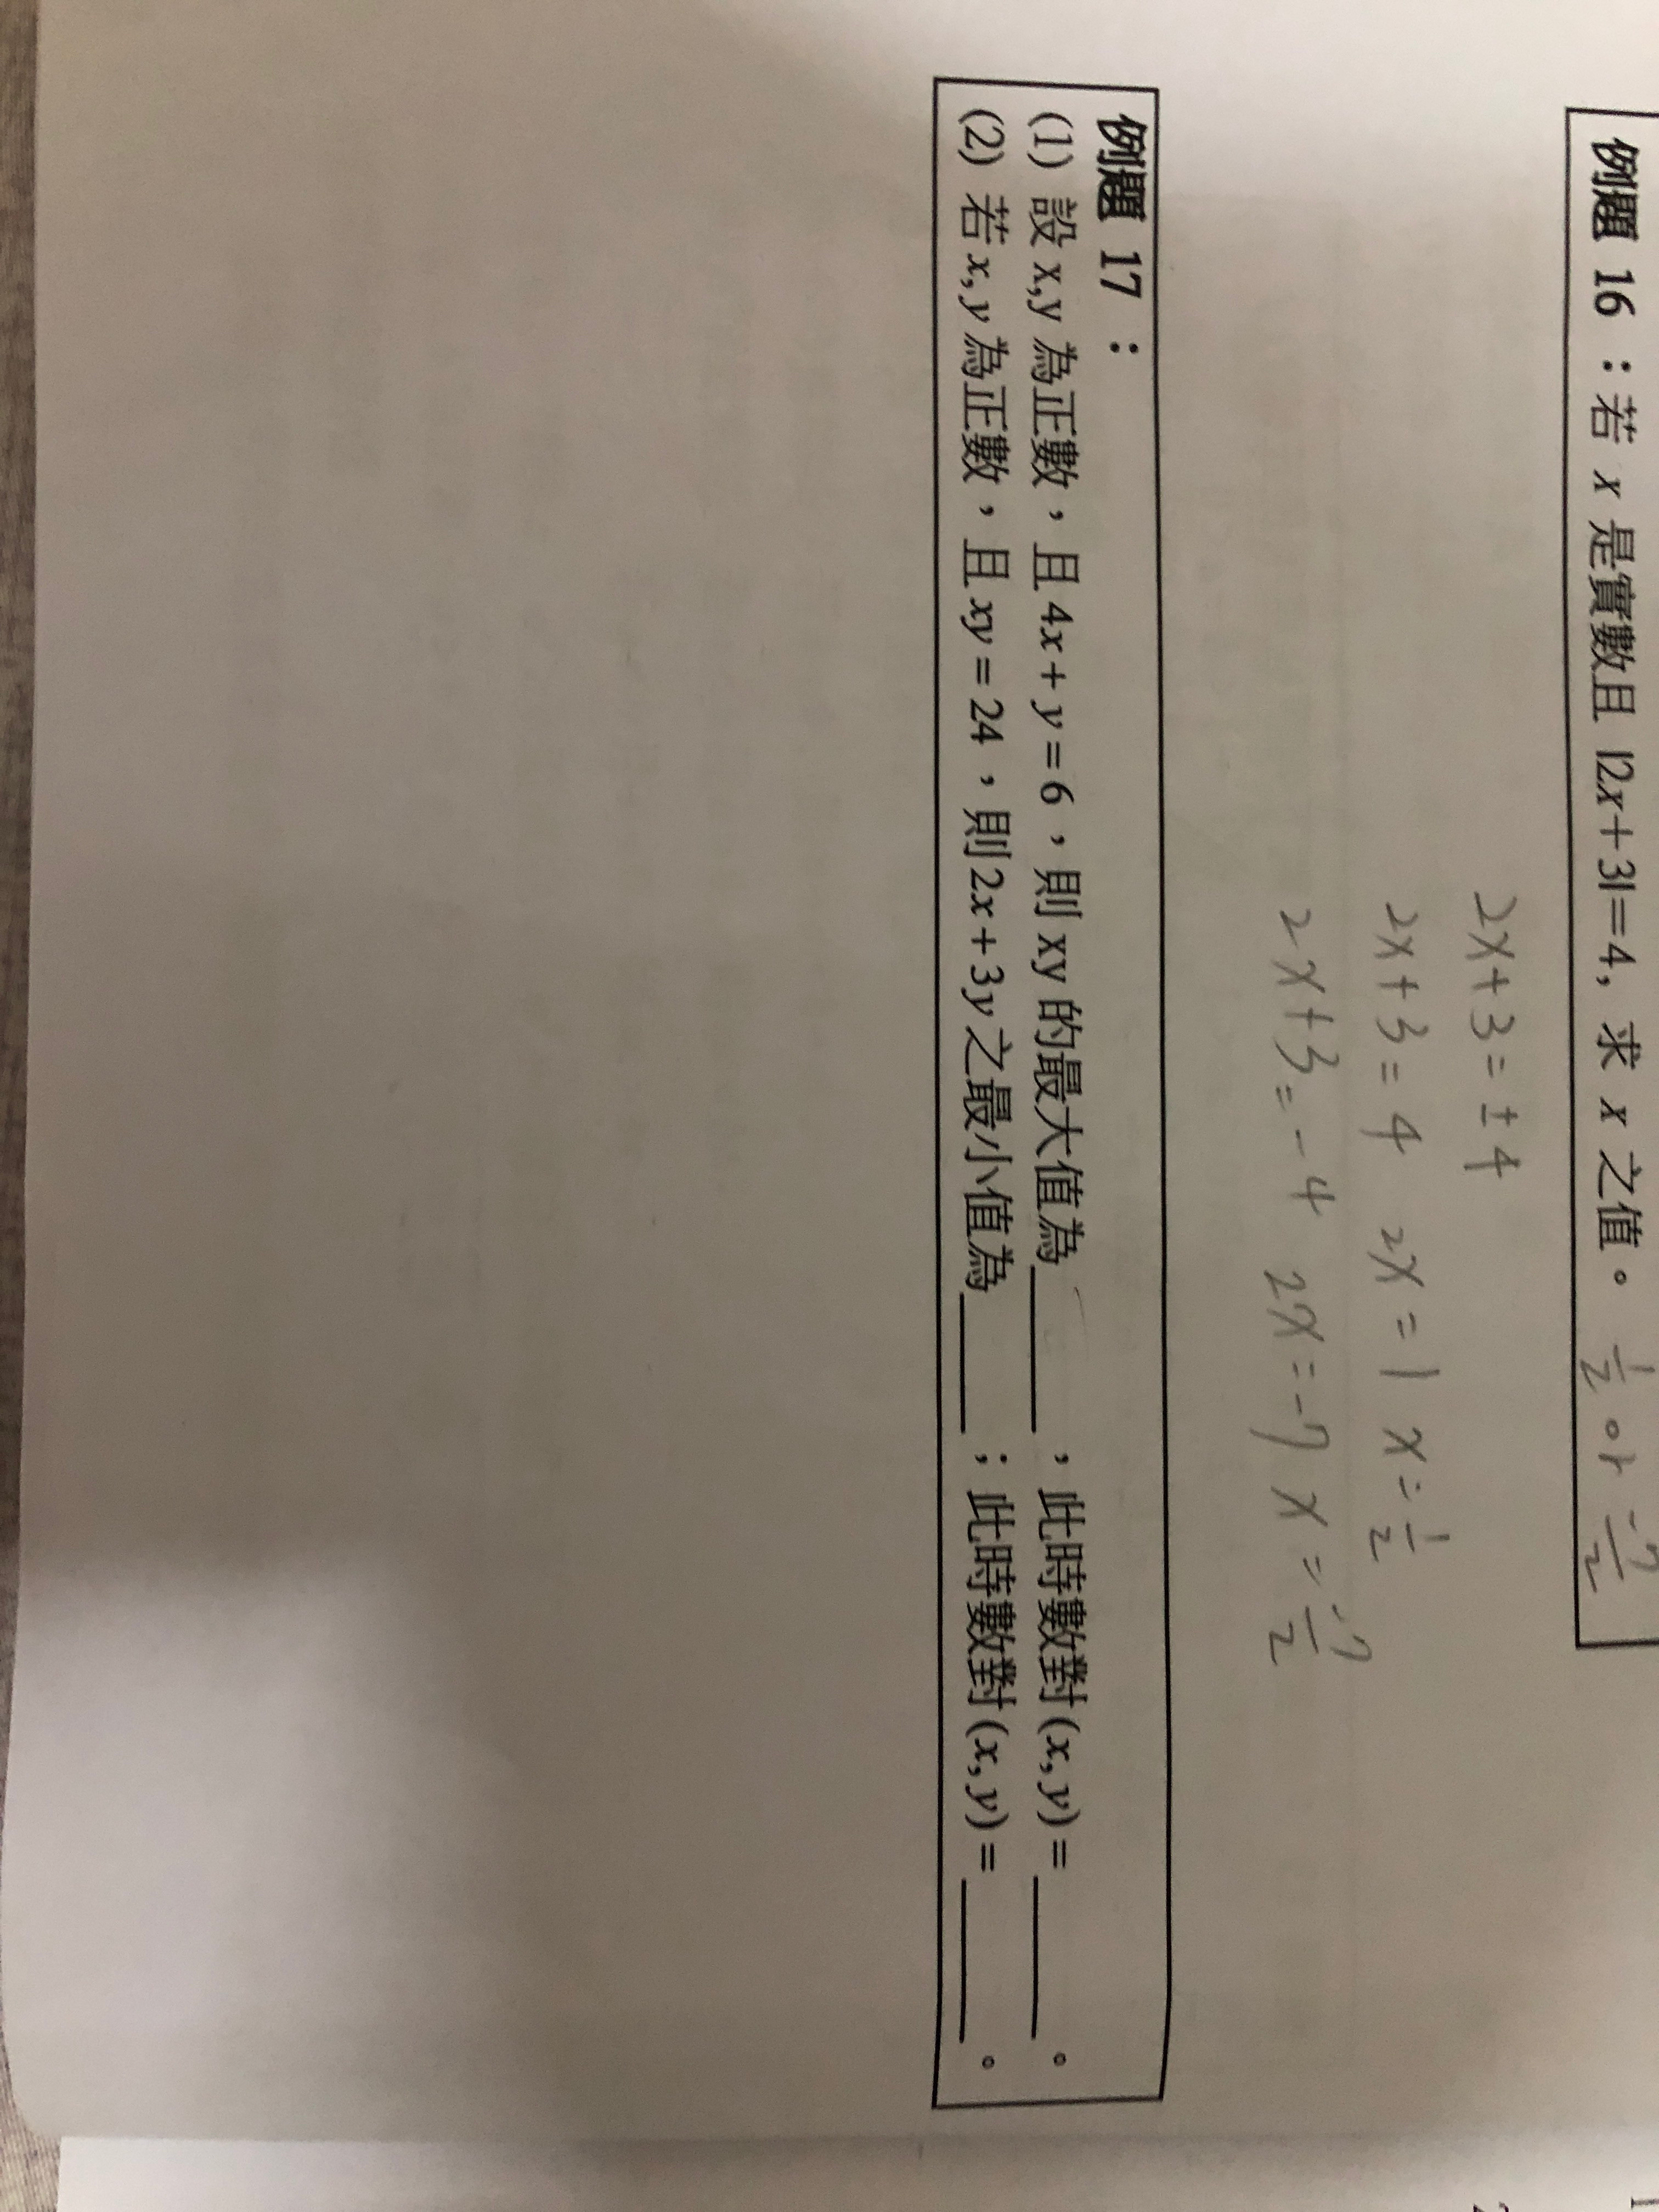 例題 16 ：若 x 是實數且 |2x+3|=4, 求 x 之值。 1/2 or -7/2
2x+3=±4
2x+3=4 2x=1 x=1/2
2x+3=-4 2x=-7 x=-7/2
例題 17 ：
(1) 設 x,y 為正數，且 4x+y=6，則 xy 的最大值為____，此時數對(x,y)=____。
(2) 若 x,y 為正數，且 xy=24，則 2x+3y 之最小值為____；此時數對(x,y)=____。